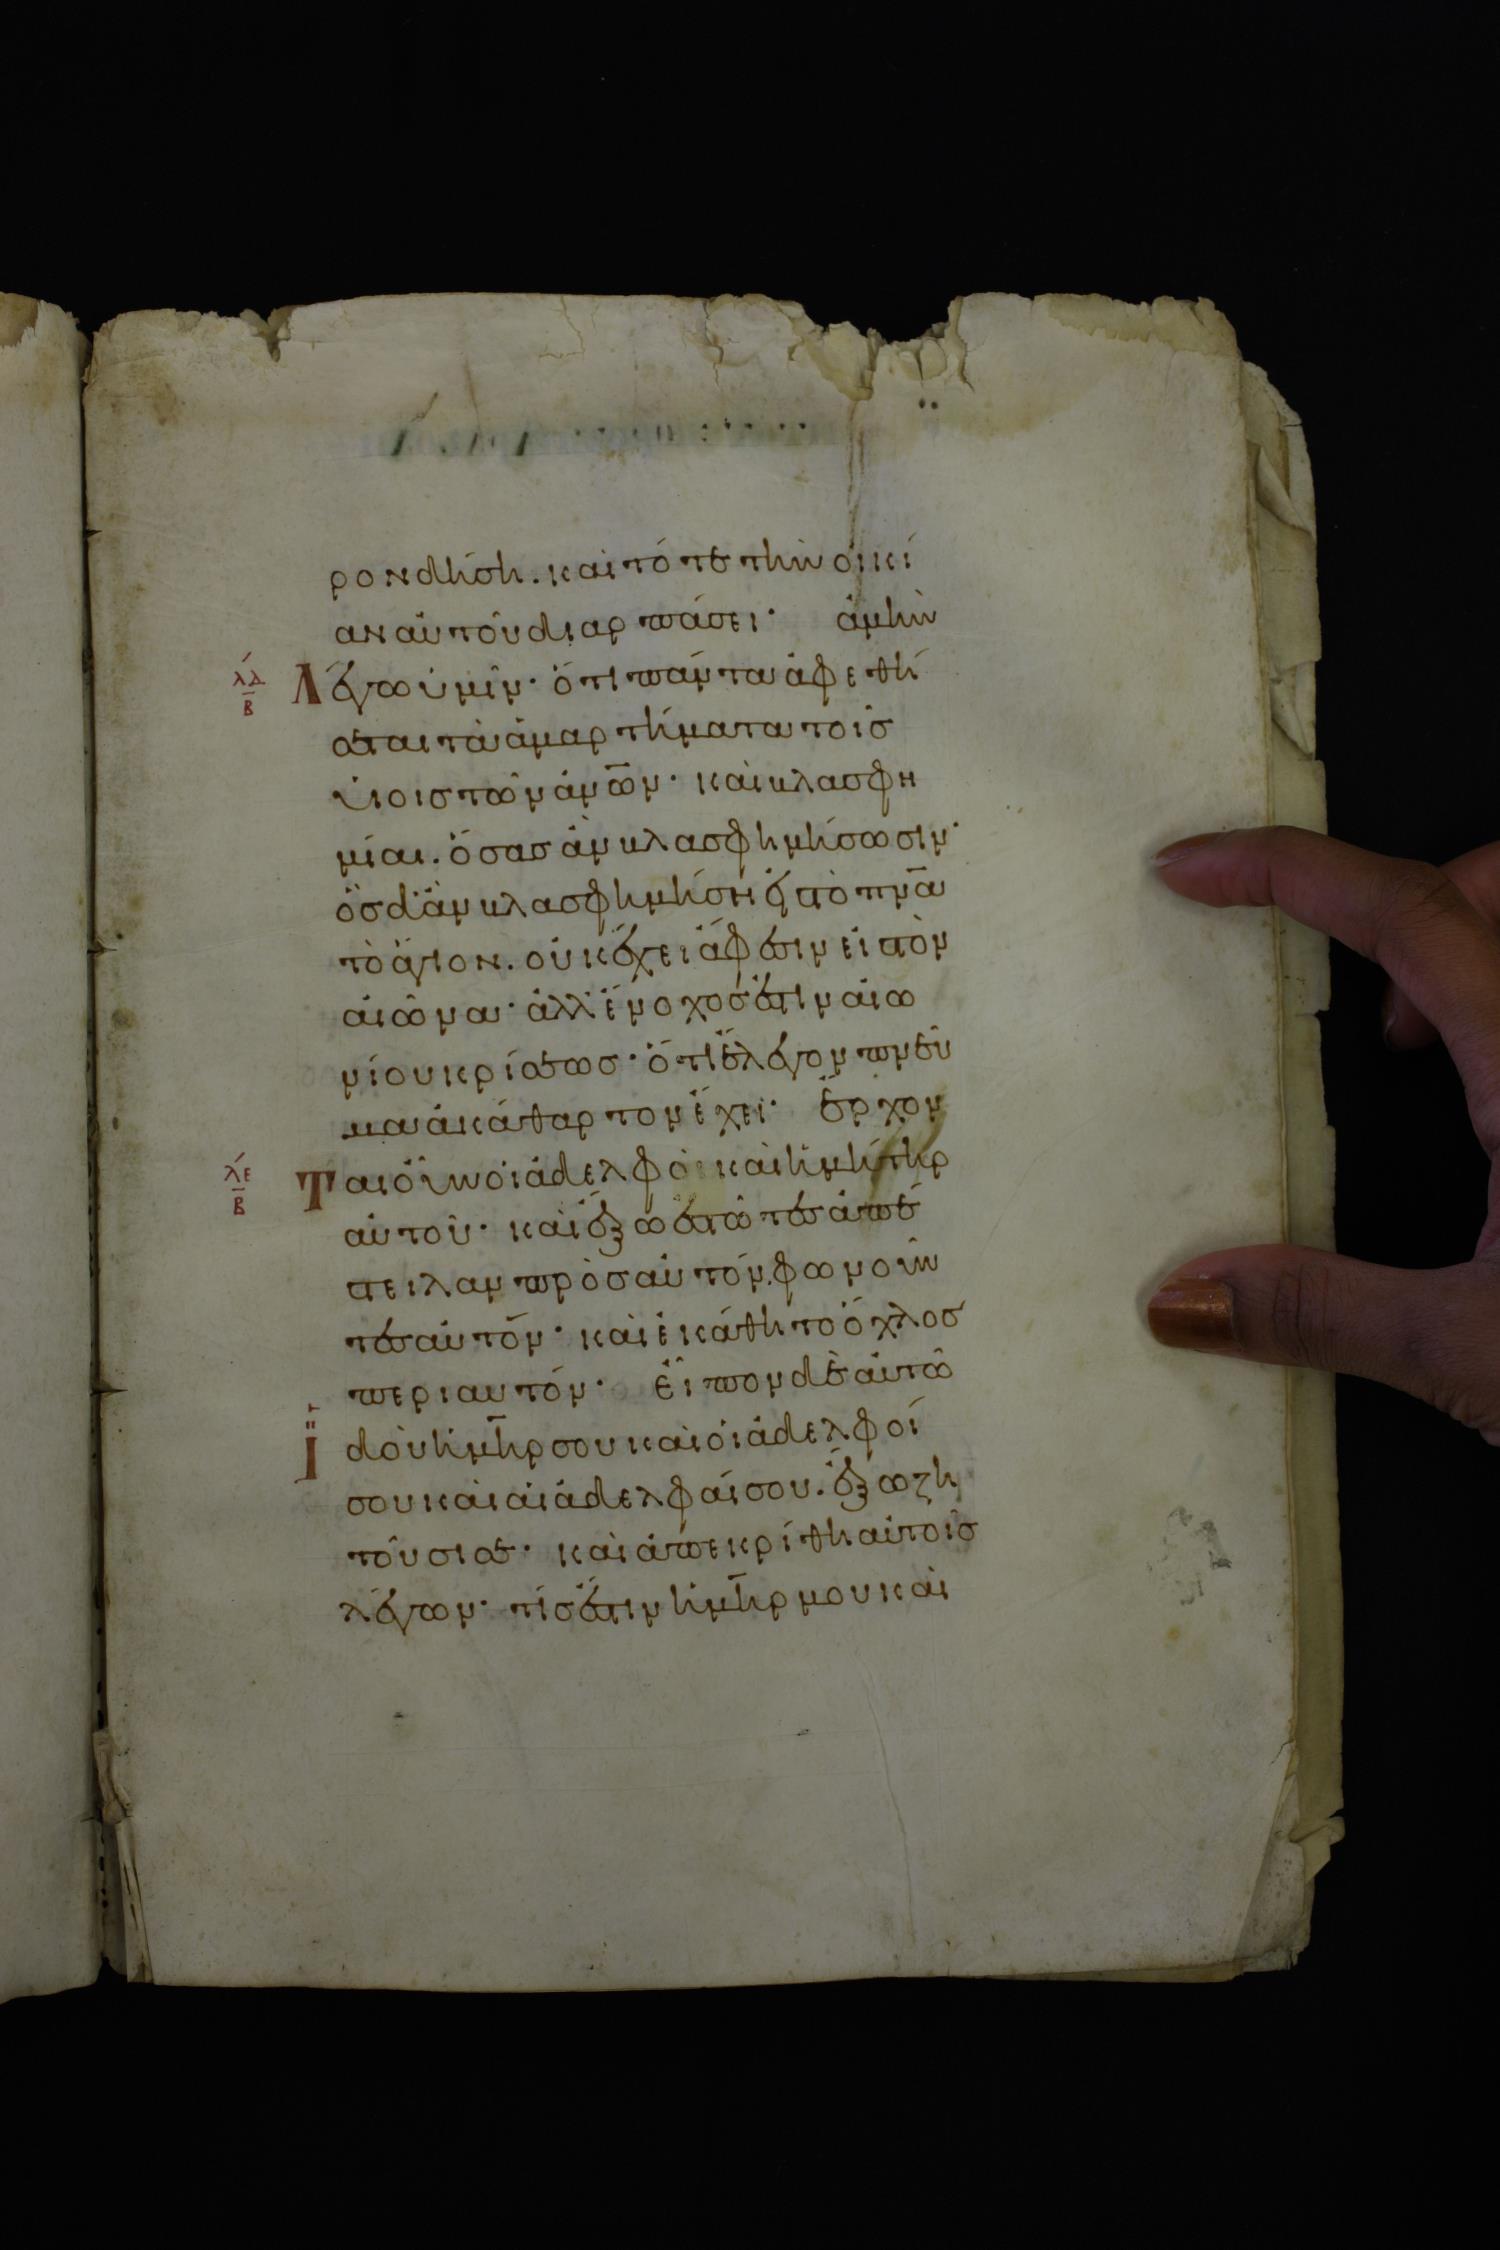 ρον δήση. καὶ τότε τὴν οἰκί
αν αὐτοῦ διαρπάσει· ἀμὴν
λδ
β
Λέγω ὑμῖν· ὅτι πάντα ἀφεθή
σεται τὰ ἁμαρτήματα τοῖς
υἱοῖς τῶν ἀν̅ω̅ν· καὶ βλασφη
μίαι. ὅσας ἂν βλασφημήσωσιν·
ὃς δ' ἂν βλασφημήση εἰς τὸ πν̅α
τὸ ἅγιον. οὐκ ἔχει ἄφεσιν εἰς τὸν
αἰῶνα· ἀλλ' ἔνοχός ἐστιν αἰω
νίου κρίσεως· ὅτι ἔλεγον πνεῦ
μα ἀκάθαρτον ἔχει· ἔρχον
λε
β
Ται οὖν οἱ ἀδελφοὶ καὶ ἡ μήτηρ
αὐτοῦ· καὶ ἔξω ἑστῶτες ἀπέ
στειλαν πρὸς αὐτόν, φωνοῦν
τες αὐτόν· καὶ ἐκάθητο ὄχλος
περι αυτόν· εἶπον δὲ αὐτῶ
Ἰδοὺ ἡ μ̅η̅ρ σου καὶ οἱ ἀδελφοί
σου καὶ αἱ ἀδελφαί σου. ἔξω ζη
τοῦσι σε· καὶ ἀπεκρίθη αὐτοῖς
λέγων· τίς ἐστιν ἡ μ̅η̅ρ μου καὶ